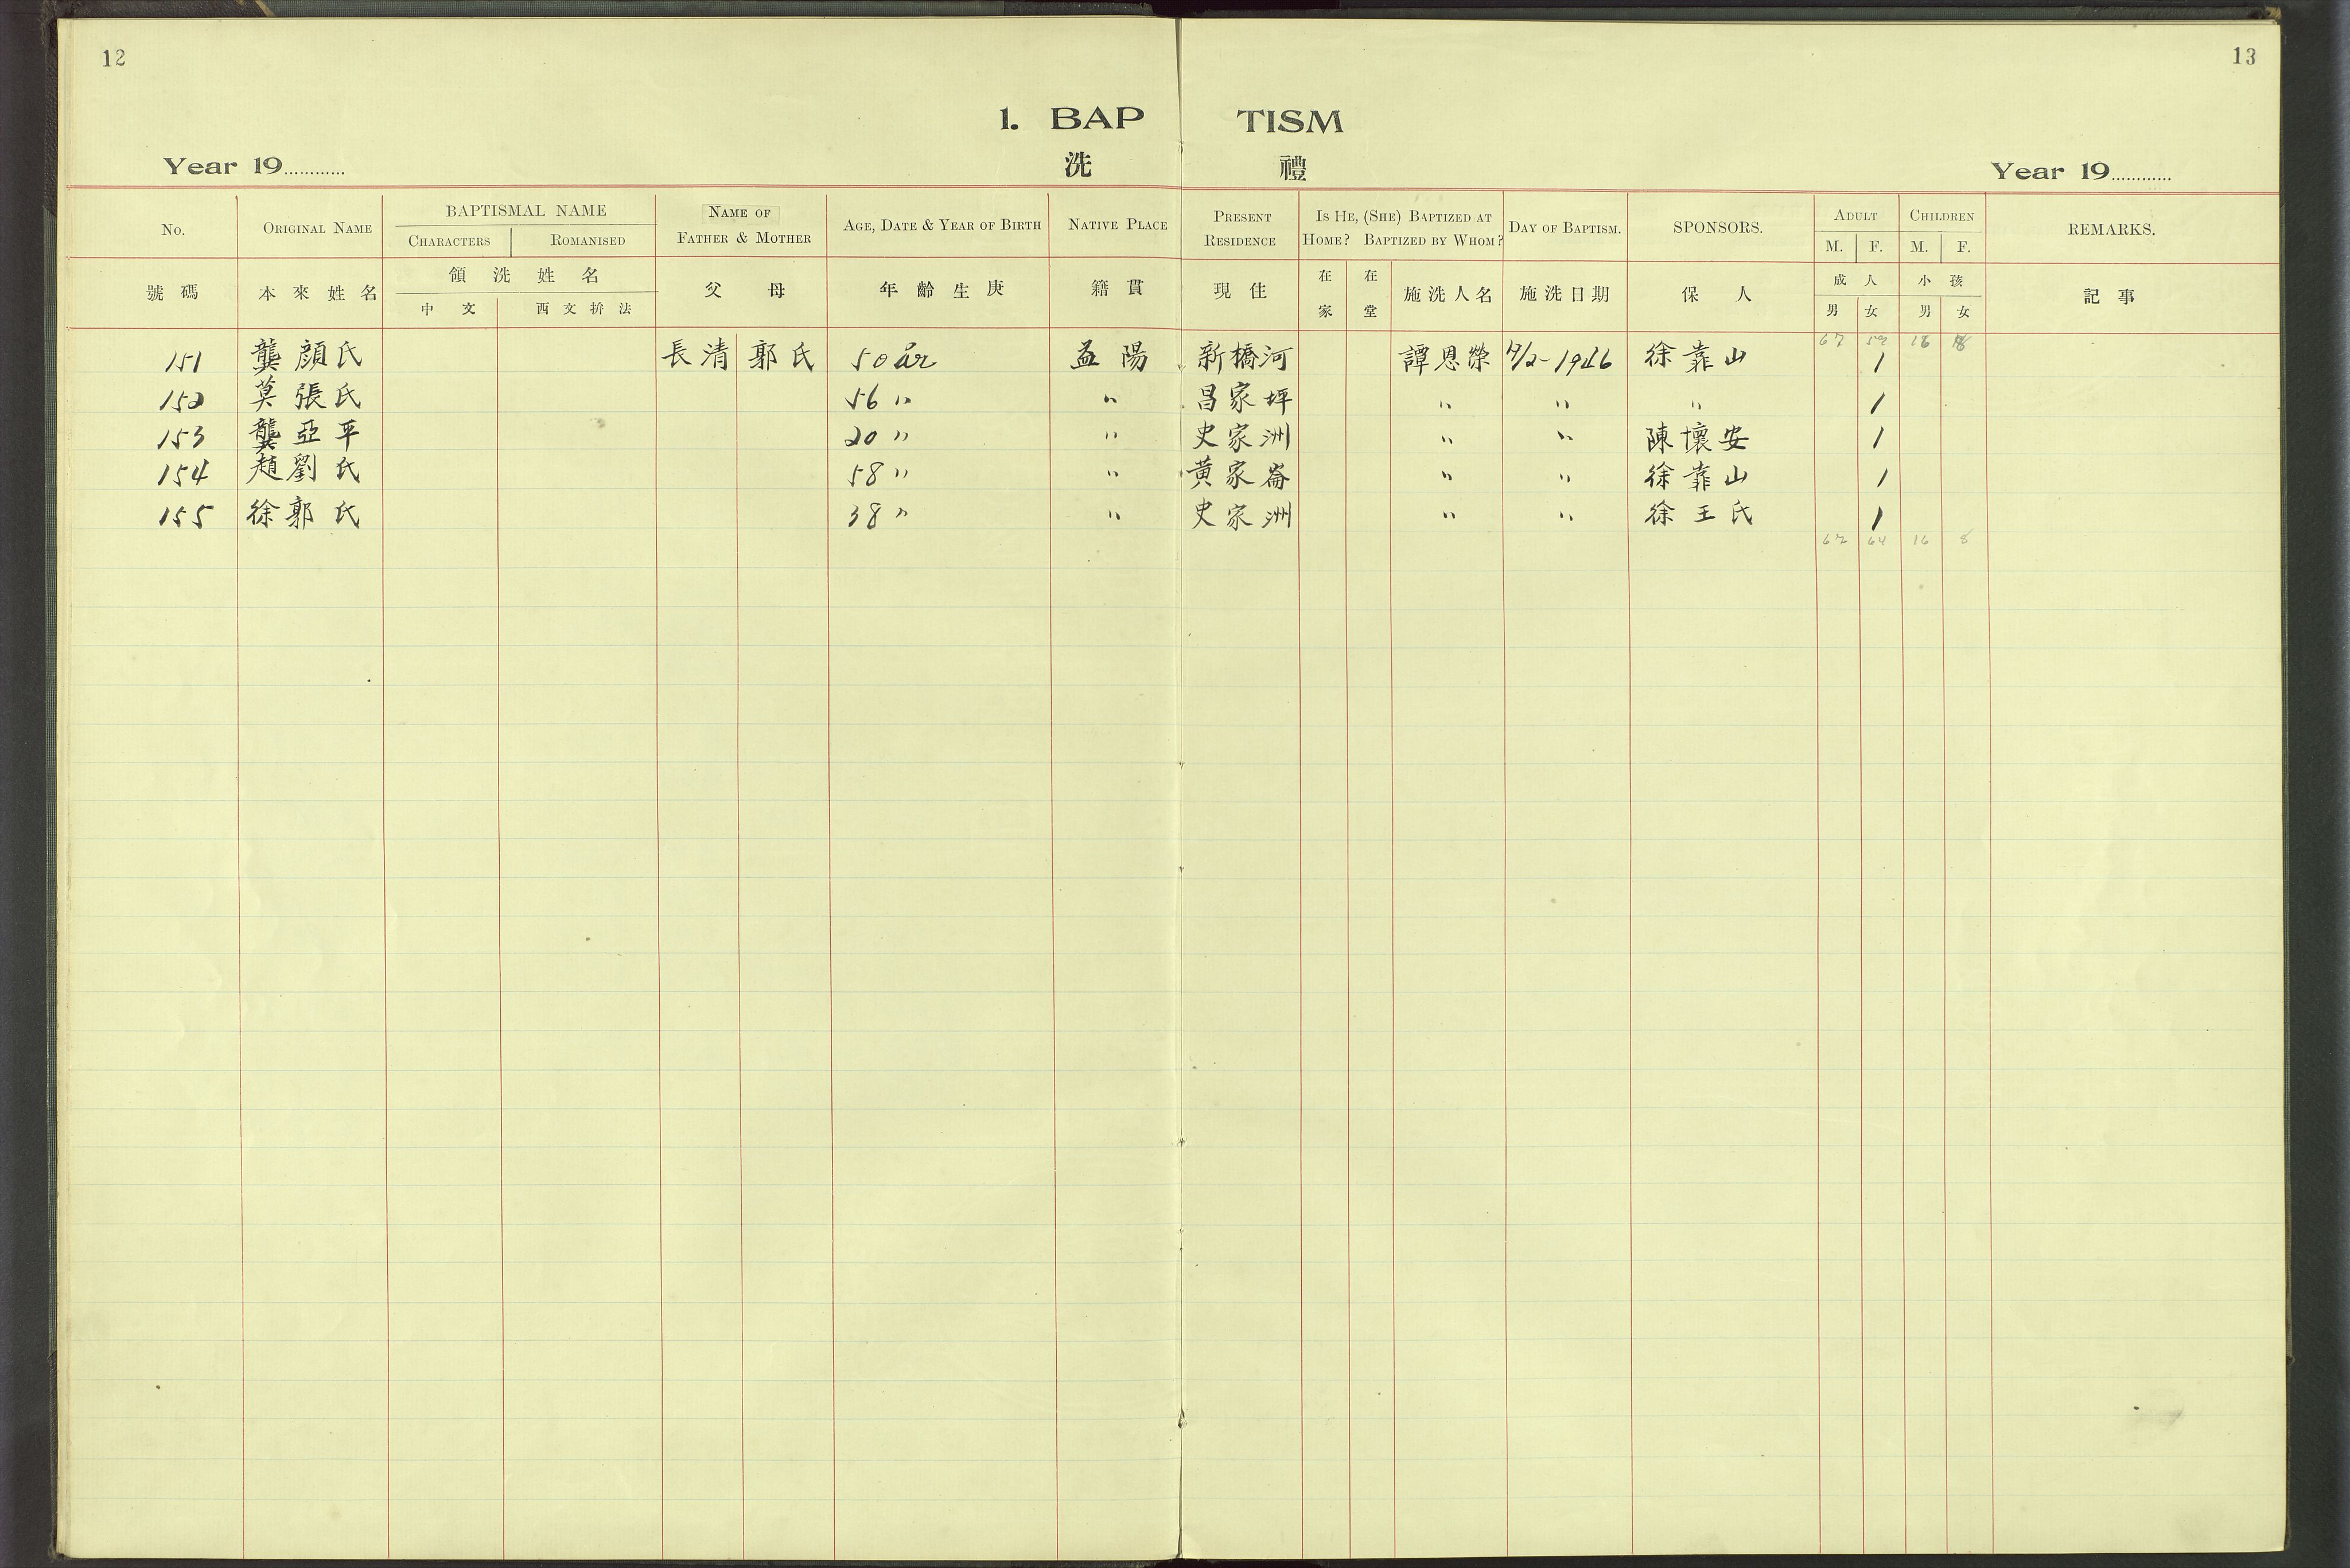 12
13
1. BAP TISM
洗 禮
Year 19............ Year 19............
No. ORIGINAL NAME BAPTISMAL NAME CHARACTERS ROMANISED NAME OF FATHER & MOTHER AGE, DATE & YEAR OF BIRTH NATIVE PLACE PRESENT RESIDENCE IS HE, (SHE) BAPTIZED AT HOME? BAPTIZED BY WHOM? DAY OF BAPTISM. SPONSORS. ADULT M. F. CHILDREN M. F. REMARKS.
號碼 本來姓名 領洗姓名 中文 西文拚法 父 母 年齡生庚 籍貫 現住 在家 在堂 施洗人名 施洗日期 保人 成人 男 女 小孩 男 女 記事
67 59 16 8
151 龔顔氏 長清 郭氏 50 år 益陽 新橋河 譚恩榮 /2-1946 徐靠山 1
152 莫張氏 56 " " 昌家坪 " " " 1
153 龔亞平 20 " " 史家洲 " " 陳壞安 1
154 趙劉氏 58 " " 黄家崙 " " 徐靠山 1
155 徐郭氏 38 " " 史家洲 " " 徐王氏 1
67 64 16 8